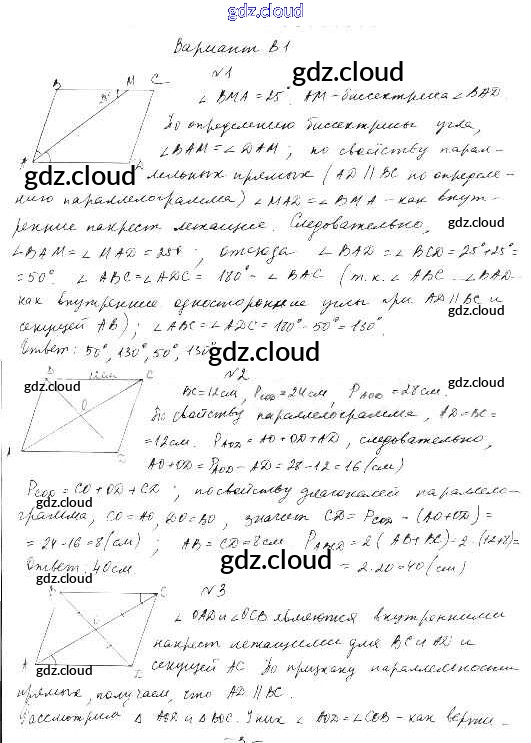 gdz.cloud
Вариант В1
№1
∠ BMA = 25°. AM - биссектриса ∠ BAD.
По определению биссектрисы угла,
∠BAM = ∠DAM ; по свойству парал-
лельных прямых (AD || BC по определе-
нию параллелограмма) ∠MAD = ∠BMA - как внут-
ренние накрест лежащие. Следовательно,
∠BAM = ∠MAD = 25° ; отсюда ∠BAD = ∠BCD = 25°+25° =
= 50°. ∠ABC = ∠ADC = 180° - ∠BAC (т.к. ∠ABC ∠BAD
как внутренние односторонние углы при AD || BC и
секущей AB) ; ∠ABC = ∠ADC = 180° - 50° = 130°.
Ответ: 50°, 130°, 50°, 130°
№2
12см
BC = 12см, P_COD = 24см, P_AOD = 28см.
По свойству параллелограмма, AD = BC =
= 12см. P_AOD = AO + OD + AD, следовательно,
AO + OD = P_AOD - AD = 28 - 12 = 16 (см)
P_COD = CO + OD + CD ; по свойству диагоналей паралело-
грамма, CO = AO, DO = BO, значит CD = P_COD - (AO + OD) =
= 24 - 16 = 8 (см) ; AB = CD = 8см P_ABCD = 2(AB + BC) = 2·(12+8) =
Ответ: 40см = 2·20 = 40 (см)
№3
∠OAD и ∠OCB являются внутренними
накрест лежащими для BC и AD и
секущей AC. По признаку параллельности
прямых, получаем, что AD || BC.
Рассмотрим Δ AOD и Δ BOC. У них ∠AOD = ∠COB - как верти-
- 3 -
gdz.cloud
gdz.cloud
gdz.cloud
gdz.cloud
gdz.cloud
gdz.cloud
gdz.cloud
gdz.cloud
gdz.cloud
gdz.cloud
gdz.cloud
gdz.cloud
gdz.cloud
gdz.cloud